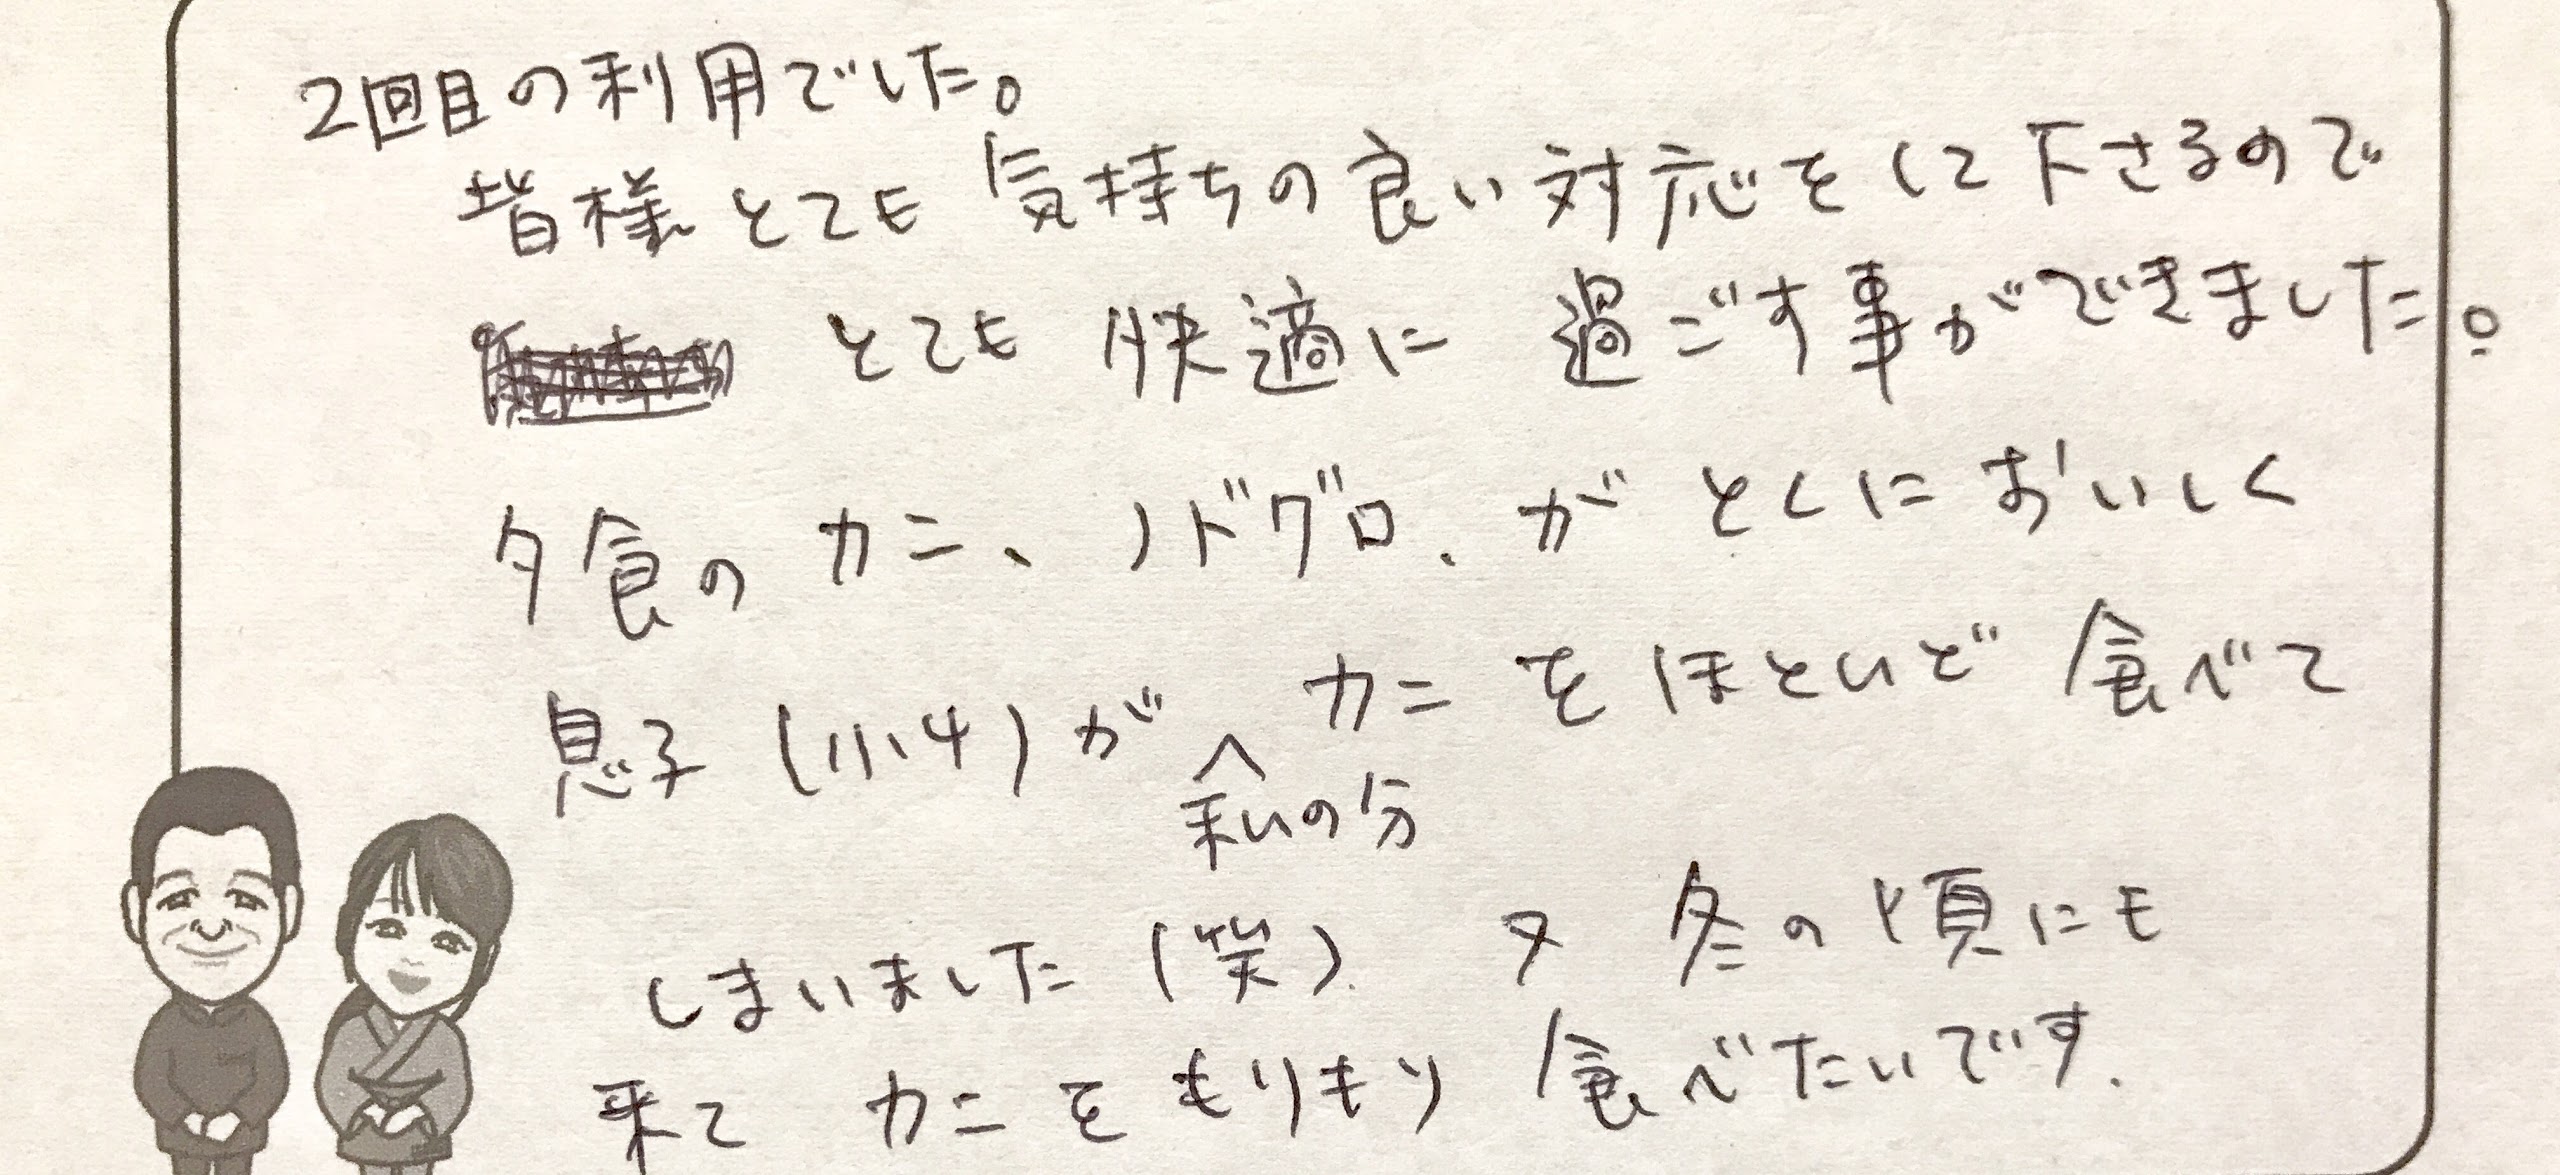 2回目の利用でした。
皆様とても気持ちの良い対応をして下さるので
とても快適に過ごす事ができました。
夕食のカニ、ノドグロ、がとくにおいしく
息子(小4)がカニをほとんど食べて
私の分
しまいました(笑)又冬の頃にも
来てカニをもりもり食べたいです.